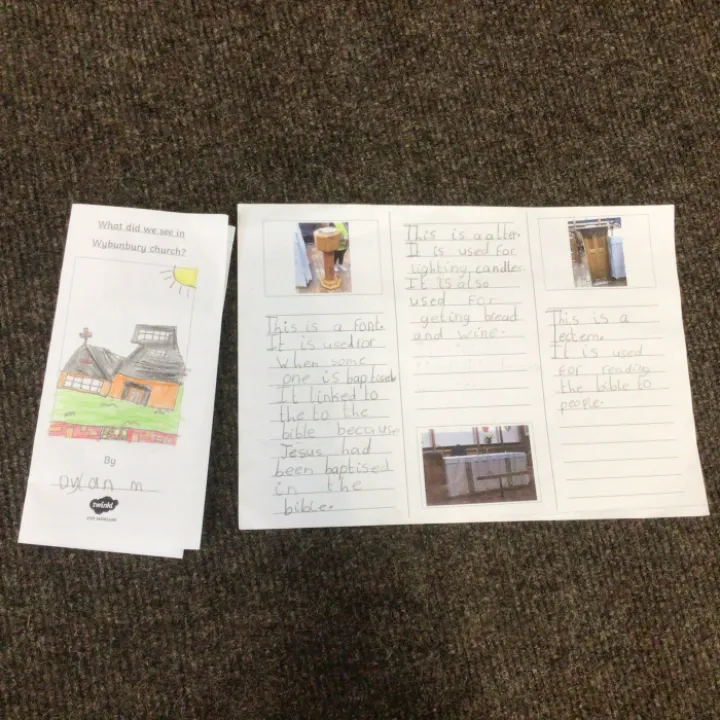 What did we see in
Wybunbury church?
By
Dylan m
twinkl
This is a font.
It is used for
When some
one is baptised
It linked to
the to the
bible because
Jesus had
been baptised
in the
bible.
This is a alter.
It is used for
lighting candles.
It is also
used for
geting bread
and wine.
This is a
lectern.
It is used
for reading
the bible to
people.